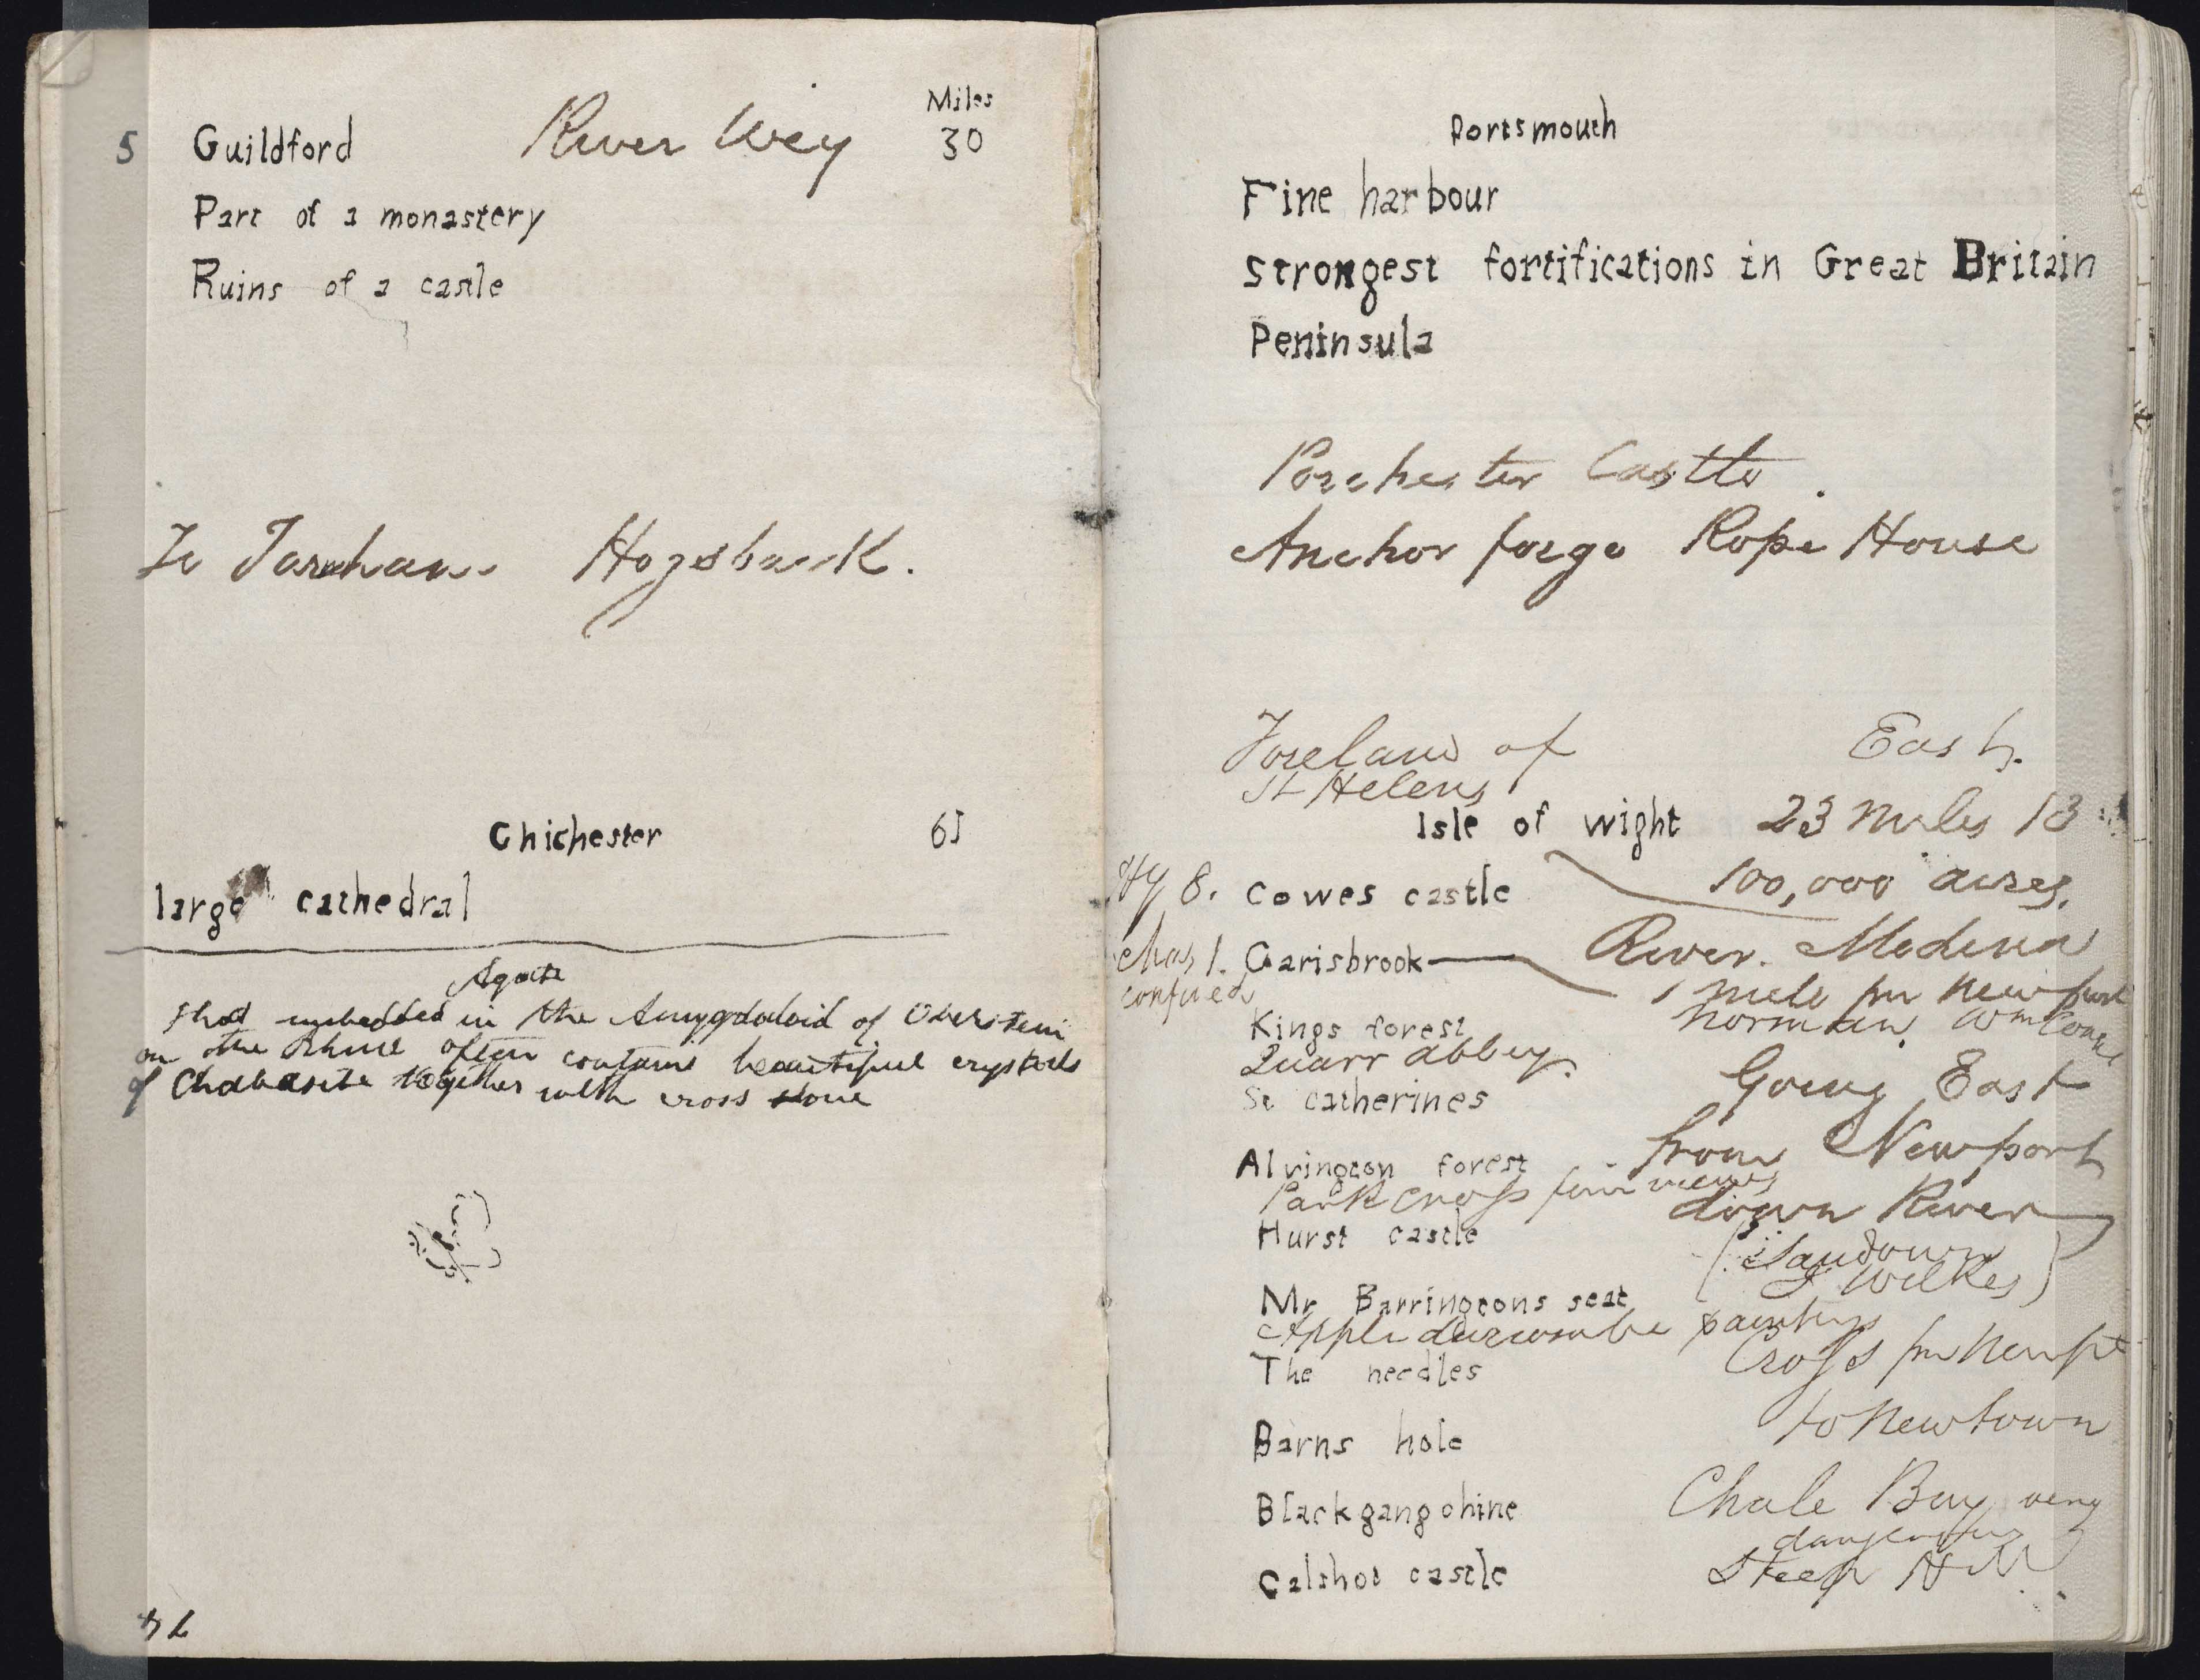 Miles
5 Guildford River Wey 30
Part of a monastery
Ruins of a castle
To Farnham Hogsback.
Chichester 65
large cathedral
Agate
that imbedded in the Amygdaloid of Oberstein
on the Rhine often contains beautiful crystals
of Chabasite together with cross stone
Portsmouth
Fine harbour
Strongest fortifications in Great Britain
Peninsula
Porchester Castle.
Anchor forge Rope House
Foreland of East.
St Helens
Isle of wight 23 miles 13
100,000 acres.
Hy 8. Cowes castle
Chas 1. Carisbrook River. Medina
confined
1 mile fm Newport
Kings forest Norman. Wm Conq
Quarr abbey.
St catherines Going East
from Newport
Alvington forest
Park cross fine views
down River
Hurst castle
(Sandown
J Wilkes)
Mr Barringtons seat
Appledurcombe paintings
The needles Cross fm Newpt
to Newtown
Barns hole
Blackgang chine Chale Bay very
dangerous
Calshot castle Steep Hill